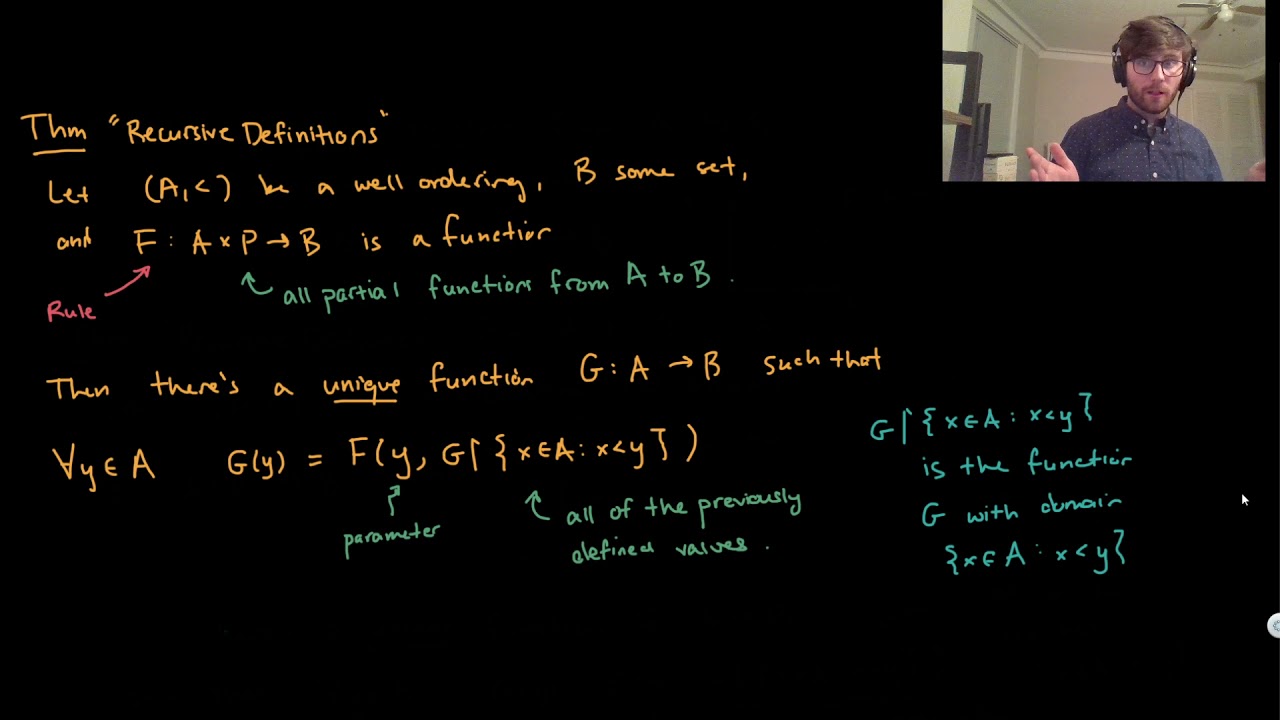 Thm "Recursive Definitions"
Let (A,<) be a well ordering, B some set,
and F: A × P → B is a function
Rule
all partial functions from A to B.
Then there's a unique function G: A → B such that
∀y∈A G(y) = F(y, G↾{x∈A: x<y})
parameter
all of the previously
defined values.
G↾{x∈A: x<y}
is the function
G with domain
{x∈A: x<y}